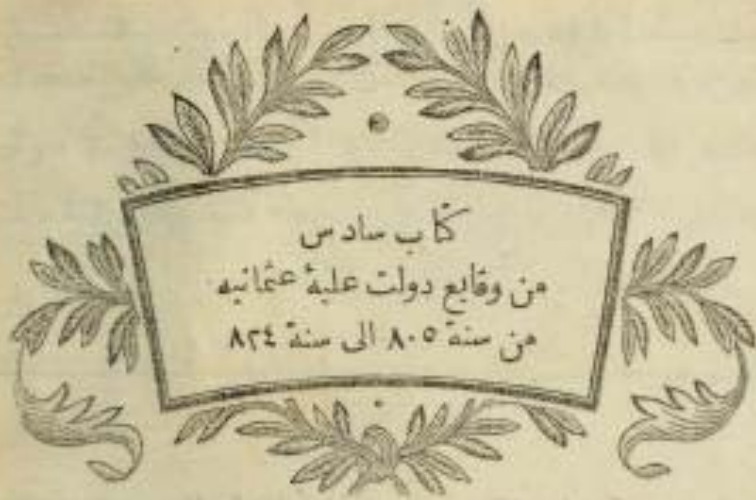 كتاب سادس
من وقايع دولت علیهٔ عثمانیه
من سنة ٨٠٥ الى سنة ٨٢٤